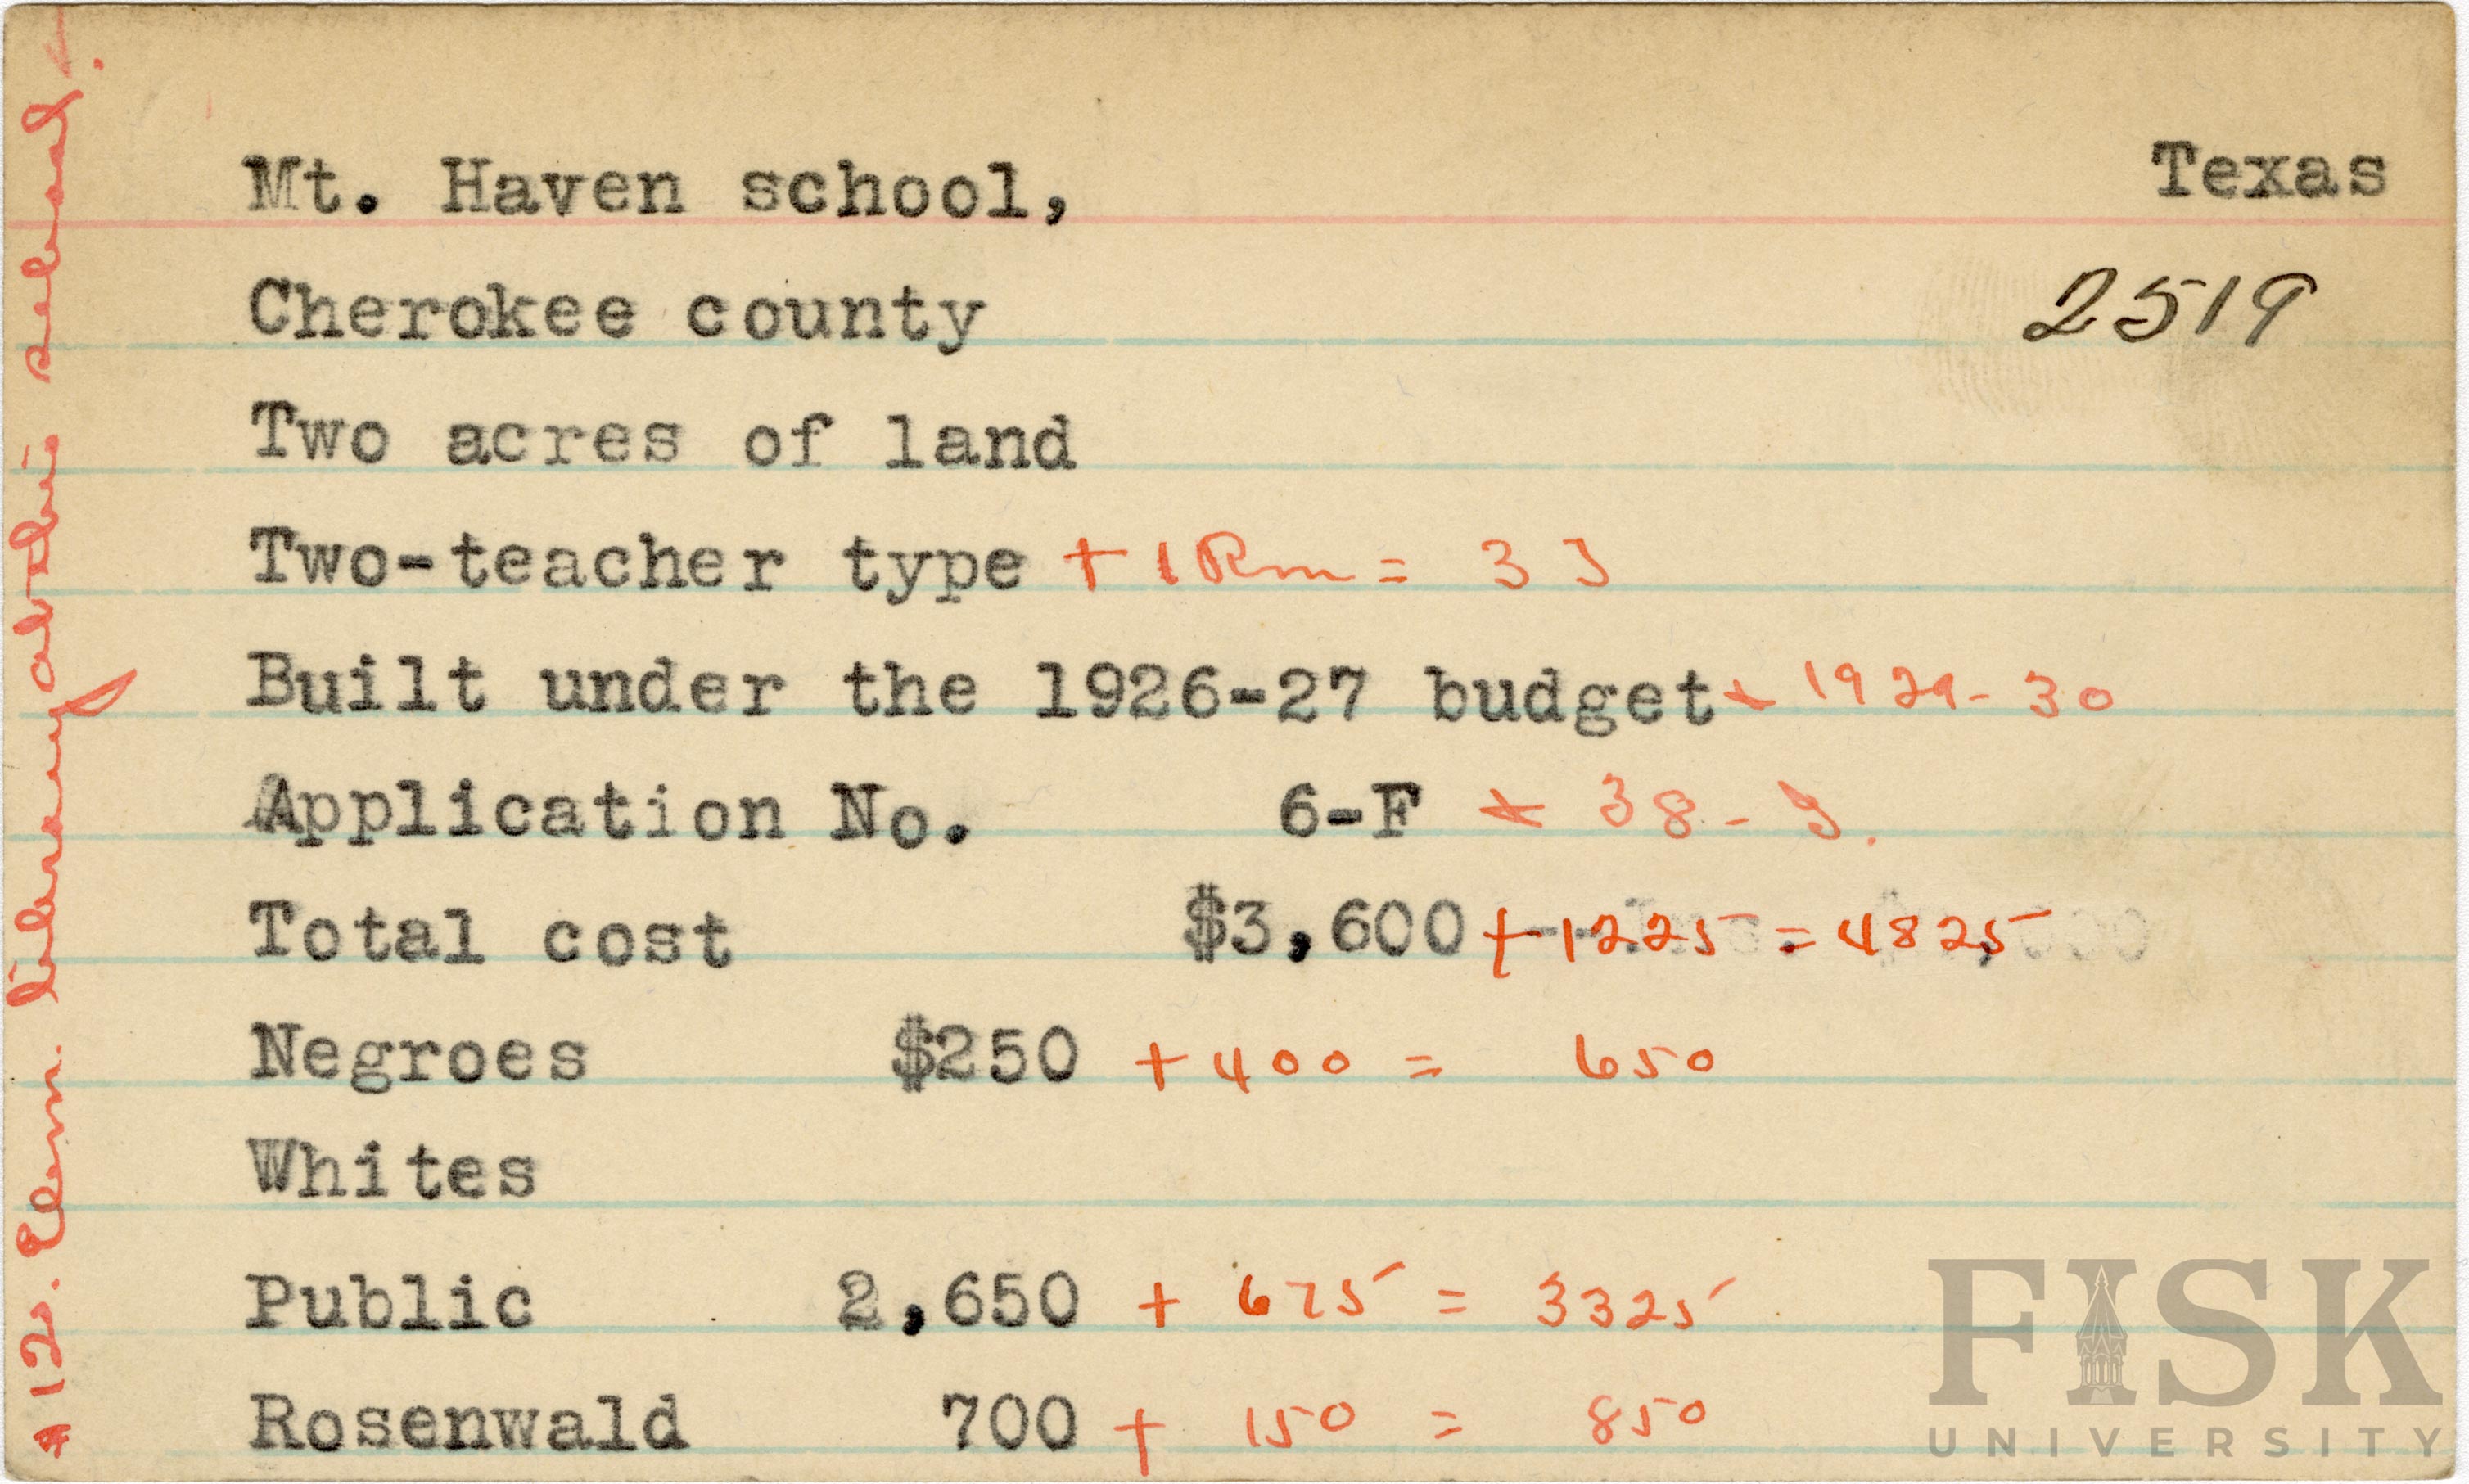 Mt. Haven school,
Texas
Cherokee county
2519
Two acres of land
Two-teacher type + 1 Rm = 3 J
Built under the 1926-27 budget + 1929-30
Application No. 6-F + 38-J.
Total cost $3,600 + 1225 = 4825
Negroes $250 + 400 = 650
Whites
Public 2,650 + 675 = 3325
Rosenwald 700 + 150 = 850
$120. Elem. library at this school.
FISK
UNIVERSITY